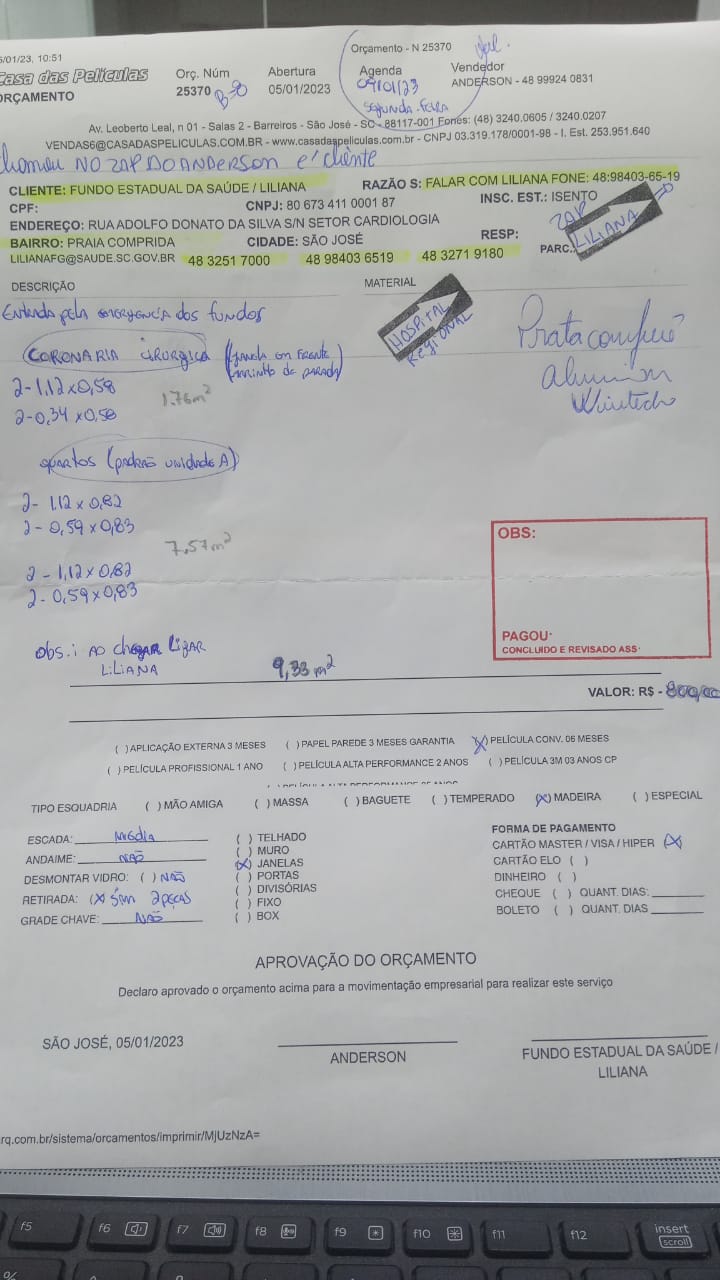 5/01/23, 10:51
Orçamento - N 25370
Casa das Películas
ORÇAMENTO
Orç. Núm
25370
Abertura
05/01/2023
Agenda
09/01/23
SEGUNDA-FEIRA
Vendedor
ANDERSON - 48 99924 0831
Av. Leoberto Leal, n 01 - Salas 2 - Barreiros - São José - SC - 88117-001 Fones: (48) 3240.0605 / 3240.0207
VENDAS6@CASADASPELICULAS.COM.BR - www.casadaspeliculas.com.br - CNPJ 03.319.178/0001-98 - I. Est. 253.951.640
chamou NO ZAP DO ANDERSON e' cliente
CLIENTE: FUNDO ESTADUAL DA SAÚDE / LILIANA
RAZÃO S: FALAR COM LILIANA FONE: 48:98403-65-19
CPF:
CNPJ: 80 673 411 0001 87
INSC. EST.: ISENTO
ENDEREÇO: RUA ADOLFO DONATO DA SILVA S/N SETOR CARDIOLOGIA
ZAP
LILIANA
BAIRRO: PRAIA COMPRIDA
CIDADE: SÃO JOSÉ
RESP:
PARC.:
LILIANAFG@SAUDE.SC.GOV.BR
48 3251 7000
48 98403 6519
48 3271 9180
DESCRIÇÃO
MATERIAL
Entrada pela emergência dos fundos
HOSPITAL
REGIONAL
CORONARIA CIRURGICA (janela em frente
carrinho de parada)
2-1,12x0,58
2-0,34x0,58
1.76m²
quartos (padrão unidade A)
2- 1,12 x 0,82
2- 0,59 x 0,83
7,57m²
2- 1,12x0,82
2- 0,59x0,83
OBS:
PAGOU:
CONCLUIDO E REVISADO ASS:
obs.: AO chegar ligar
LILIANA
9,33 m²
VALOR: R$ - 800,00
( ) APLICAÇÃO EXTERNA 3 MESES ( ) PAPEL PAREDE 3 MESES GARANTIA (X) PELÍCULA CONV. 06 MESES
( ) PELÍCULA PROFISSIONAL 1 ANO ( ) PELÍCULA ALTA PERFORMANCE 2 ANOS ( ) PELÍCULA 3M 03 ANOS CP
TIPO ESQUADRIA ( ) MÃO AMIGA ( ) MASSA ( ) BAGUETE ( ) TEMPERADO (X) MADEIRA ( ) ESPECIAL
ESCADA: Média
ANDAIME: NÃO
DESMONTAR VIDRO: ( ) NÃO
RETIRADA: (X) Sim 2 peças
GRADE CHAVE: NÃO
( ) TELHADO
( ) MURO
(X) JANELAS
( ) PORTAS
( ) DIVISÓRIAS
( ) FIXO
( ) BOX
FORMA DE PAGAMENTO
CARTÃO MASTER / VISA / HIPER (X)
CARTÃO ELO ( )
DINHEIRO ( )
CHEQUE ( ) QUANT. DIAS:
BOLETO ( ) QUANT. DIAS
APROVAÇÃO DO ORÇAMENTO
Declaro aprovado o orçamento acima para a movimentação empresarial para realizar este serviço
SÃO JOSÉ, 05/01/2023
ANDERSON
FUNDO ESTADUAL DA SAÚDE /
LILIANA
rq.com.br/sistema/orcamentos/imprimir/MjUzNzA=
f5
f6
f7
f8
f9
f10
f11
f12
insert
scroll
%